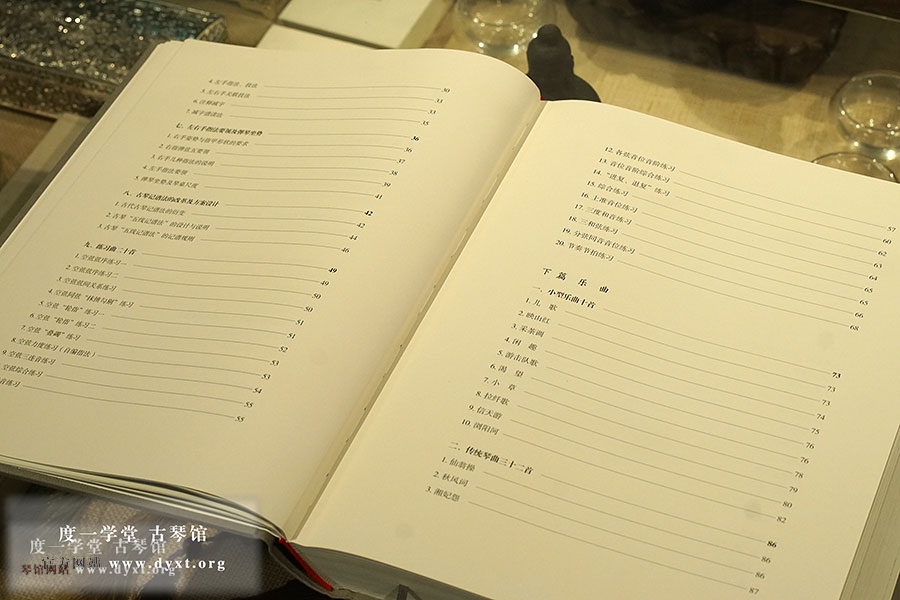 4. 左手指法、技法 30
5. 左右手关联技法 33
6. 诠释减字 33
7. 减字谱读法 35
七、左右手指法要领及弹琴坐势 36
1. 右手姿势与指甲形状的要求 36
2. 右指弹弦五要领 37
3. 右手几种指法的说明 38
4. 左手指法要领 39
5. 弹琴坐势及琴桌尺度 41
八、古琴记谱法的改革及方案设计 42
1. 古代古琴记谱法的衍变 42
2. 古琴“五线记谱法”的设计与说明 44
3. 古琴“五线记谱法”的记谱规则 46
九、练习曲二十首 49
1. 空弦弦序练习一 49
2. 空弦弦序练习二 50
3. 空弦弦间关系练习 50
4. 空弦同弦“抹挑勾剔”练习 51
5. 空弦“轮指”练习一 51
6. 空弦“轮指”练习二 52
7. 空弦“叠蠲”练习 53
8. 空弦力度练习（自编指法） 53
9. 空弦三连音练习 54
空弦综合练习 55
音练习 55
12. 各弦音位音阶练习 57
13. 音位音阶综合练习 60
14. “进复、退复”练习 62
15. 综合练习 63
16. 上准音位练习 64
17. 三度和音练习 65
18. 三和弦练习 65
19. 分弦同音音位练习 66
20. 节奏节拍练习 68
下篇 乐曲
一、小型乐曲十首 73
1. 儿歌 73
2. 映山红 73
3. 采茶画 74
4. 闲趣 75
5. 游击队歌 76
6. 渴望 76
7. 小草 78
8. 拉纤歌 79
9. 信天游 80
10. 浏阳河 82
二、传统琴曲三十二首 86
1. 仙翁操 86
2. 秋风词 86
3. 湘妃怨 87
度一学堂 古琴馆
度一学堂 古琴馆
官方网站 www.dyxt.org
琴馆网站 www.dyxt.org